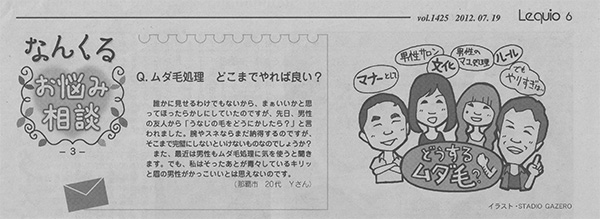 vol.1425 2012. 07. 19 Lequio 6
なんくる
お悩み
相談
-3-
Q. ムダ毛処理 どこまでやれば良い?
誰かに見せるわけでもないから、まぁいいかと思
ってほったらかしにしていたのですが、先日、男性
の友人から「うなじの毛をどうにかしたら?」と言
われました。腕やスネならまだ納得するのですが、
そこまで完璧にしないといけないものなのでしょうか?
また、最近は男性もムダ毛処理に気を使うと聞き
ます。でも、私はそったあとが青々しているキリッ
と眉の男性がかっこいいとは思えないのです。
(那覇市 20代 Yさん)
マナーとして
男性サロン
文化
男性の
マユ処理
ルール
でも
やりすぎは…
どうする
ムダ毛?
イラスト・STADIO GAZERO